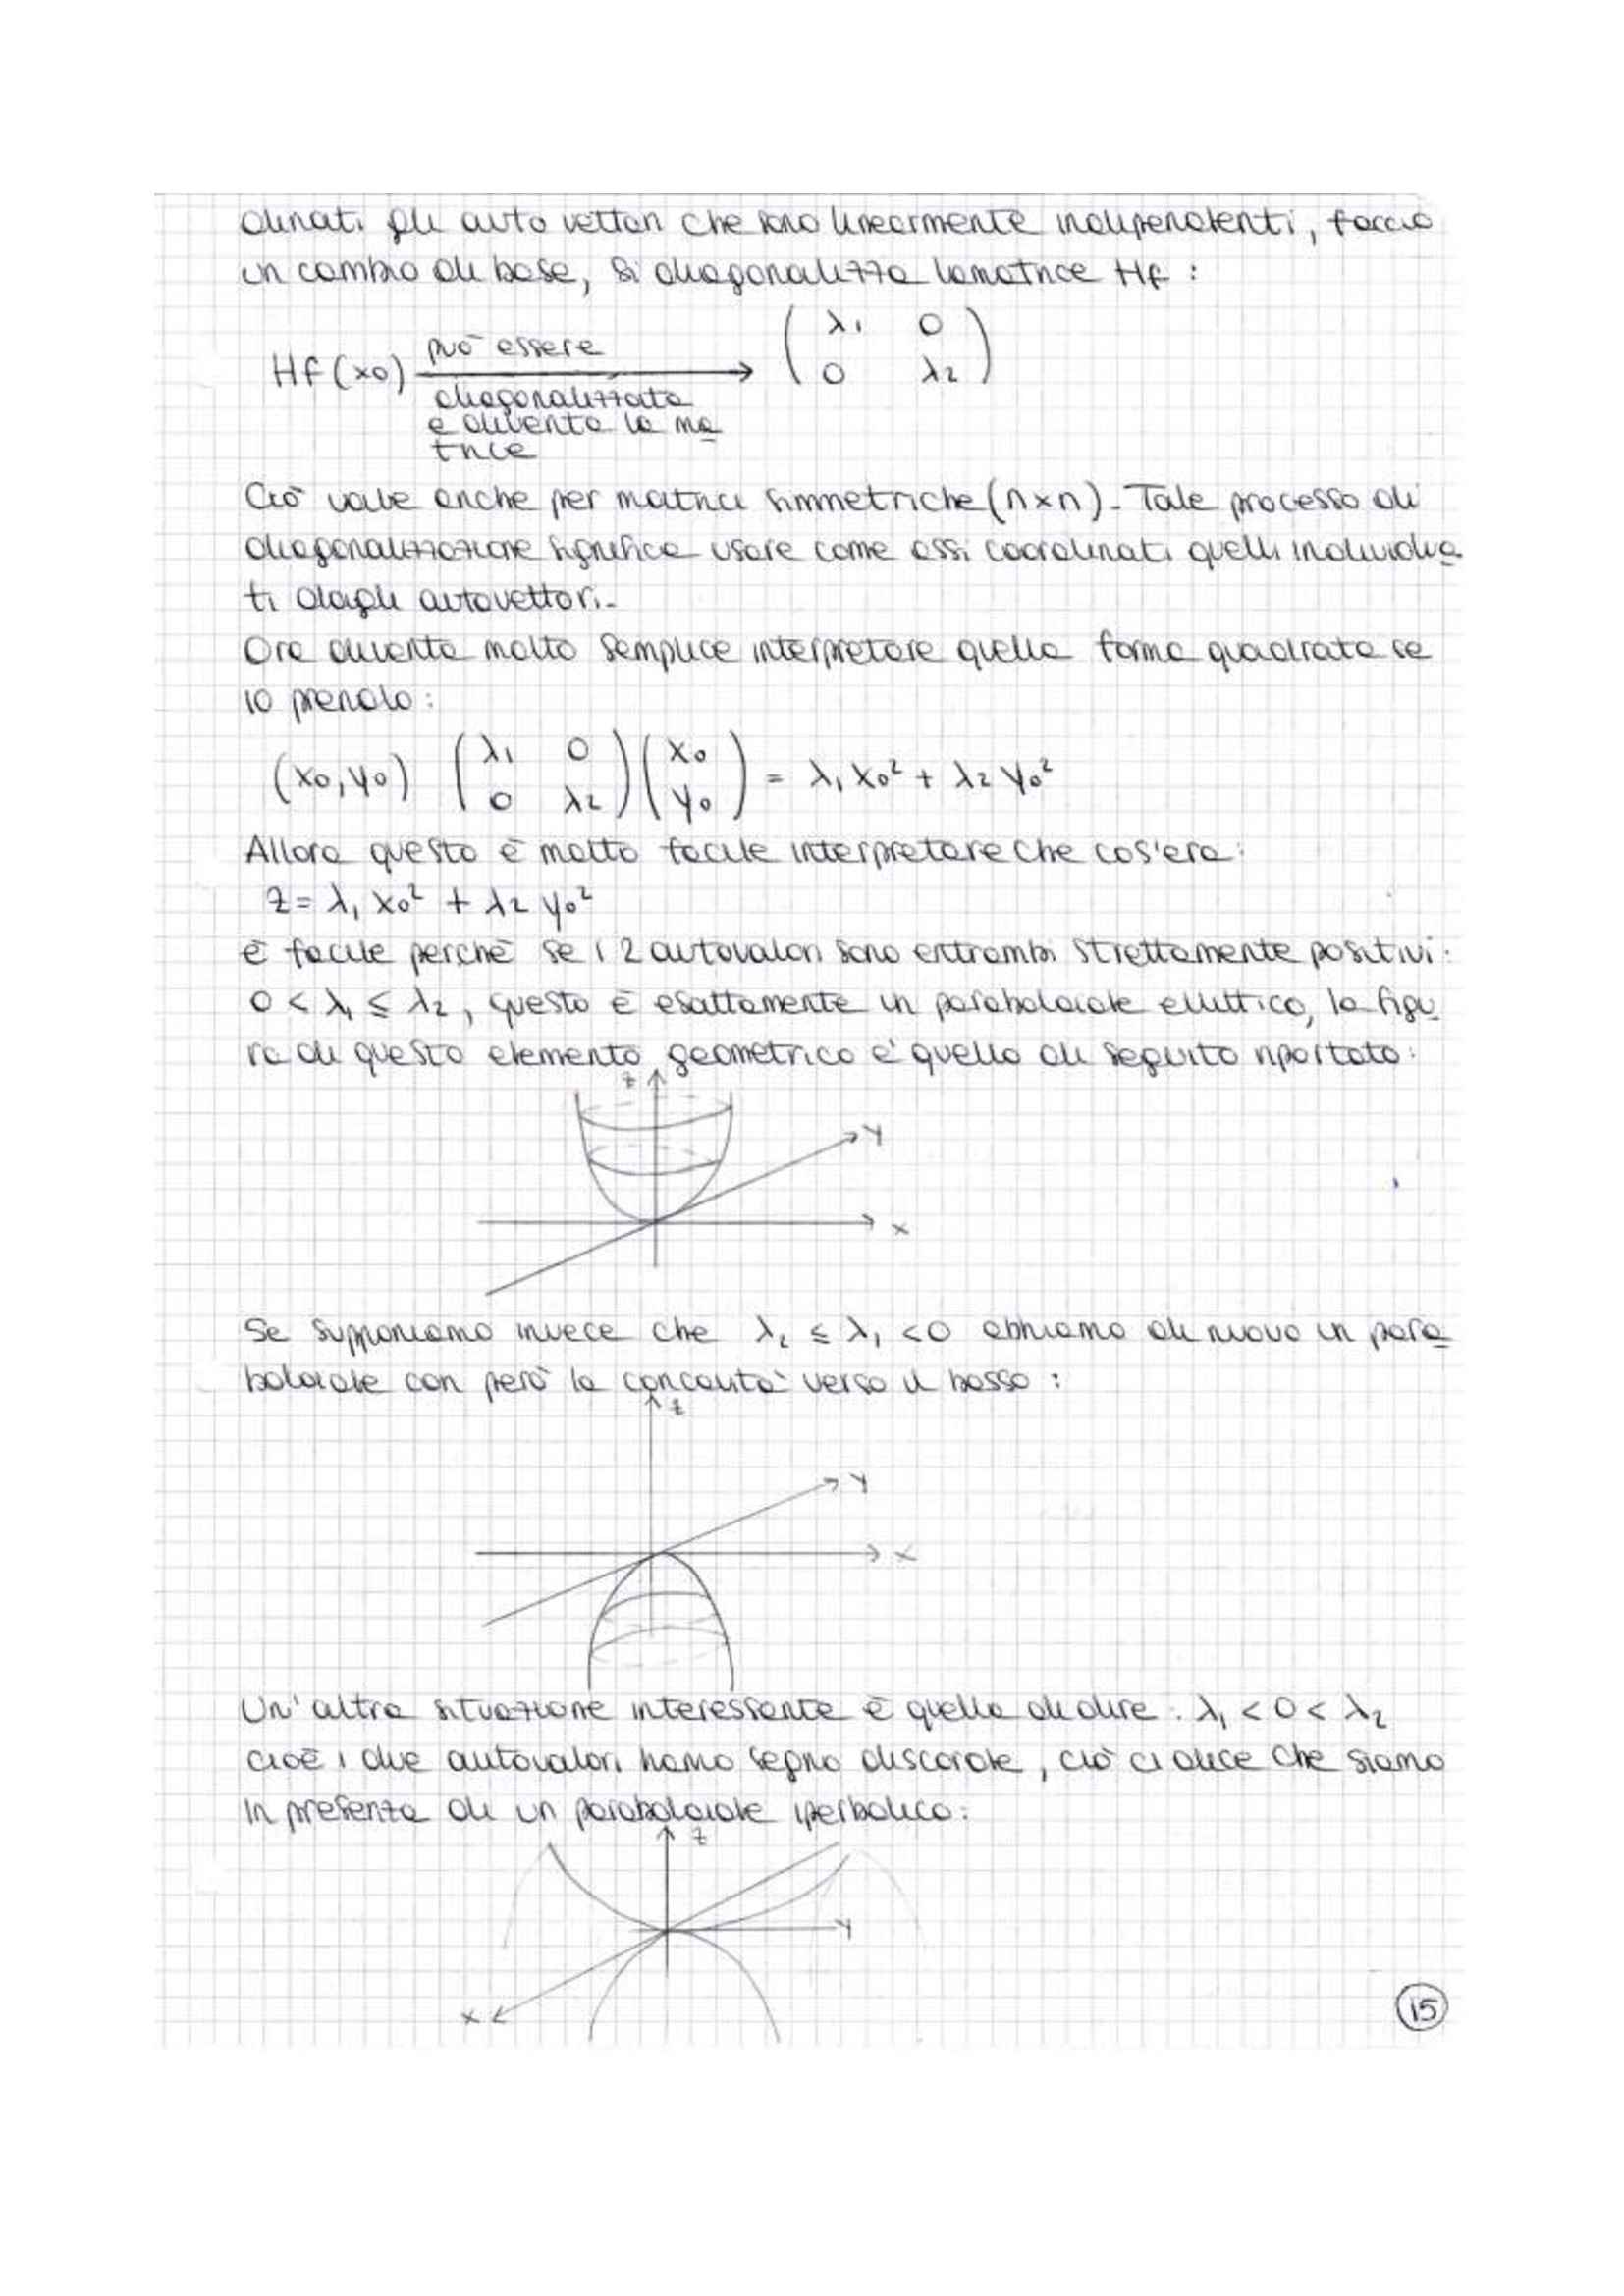 dinati gli auto vettori che sono linearmente indipendenti, faccio
un cambio di base, si diagonalizza la matrice Hf :
Hf(x0) può essere diagonalizzata e diventa la ma
trice → ( λ1 0 0 λ2 )
Ciò vale anche per matrici simmetriche (n×n). Tale processo di
diagonalizzazione significa usare come assi coordinati quelli individua
ti dagli autovettori.
Ora diventa molto semplice interpretare quella forma quadrata se
io prendo:
(x0, y0) ( λ1 0 0 λ2 ) ( x0 y0 ) = λ1 x0² + λ2 y0²
Allora questo è molto facile interpretare che cos'era:
z = λ1 x0² + λ2 y0²
è facile perchè se i 2 autovalori sono entrambi strettamente positivi:
0 < λ1 ≤ λ2, questo è esattamente un paraboloide ellittico, la figu
ra di questo elemento geometrico e' quella di seguito riportata:
z
y
x
Se supponiamo invece che λ2 ≤ λ1 <0 abbiamo di nuovo un para
boloide con però la concavità verso il basso :
z
y
x
Un'altra situazione interessante è quella di dire: λ1 < 0 < λ2
cioè i due autovalori hanno segno discorde, ciò ci dice che siamo
in presenza di un paraboloide iperbolico:
z
y
x
15